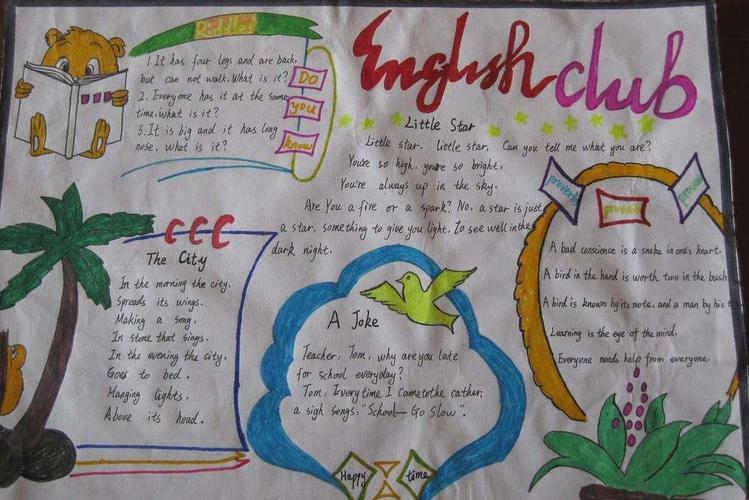 English club
1. It has four legs and are back,
but can not walk. What is it?
2. Everyone has it at the same
time, what is it?
3. It is big and it has long
nose, what is it?
DO
you
know
Little Star
Little star, little star, Can you tell me what you are?
You're so high, you're so bright,
You're always up in the sky.
Are You a fire or a spark? No, a star is just
a star, something to give you light, To see well in the
dark night.
proverb
proverb
proverb
A bad conscience is a snake in one's heart.
A bird in the hand is worth two in the bush
A bird is known by its note, and a man by his
Learning is the eye of the mind.
Everyone needs help from everyone.
CCC
The City
In the morning the city.
Spreads its wings.
Making a song.
In stone that sings.
In the evening the city.
Goes to bed.
Hanging lights.
Above its head.
A Joke
Teacher: Tom, why are you late
for school everyday?
Tom: Every time I came to the cather,
a sigh songs: "School— Go Slow".
Happy time